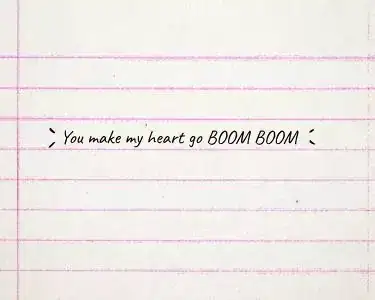 You make my heart go BOOM BOOM